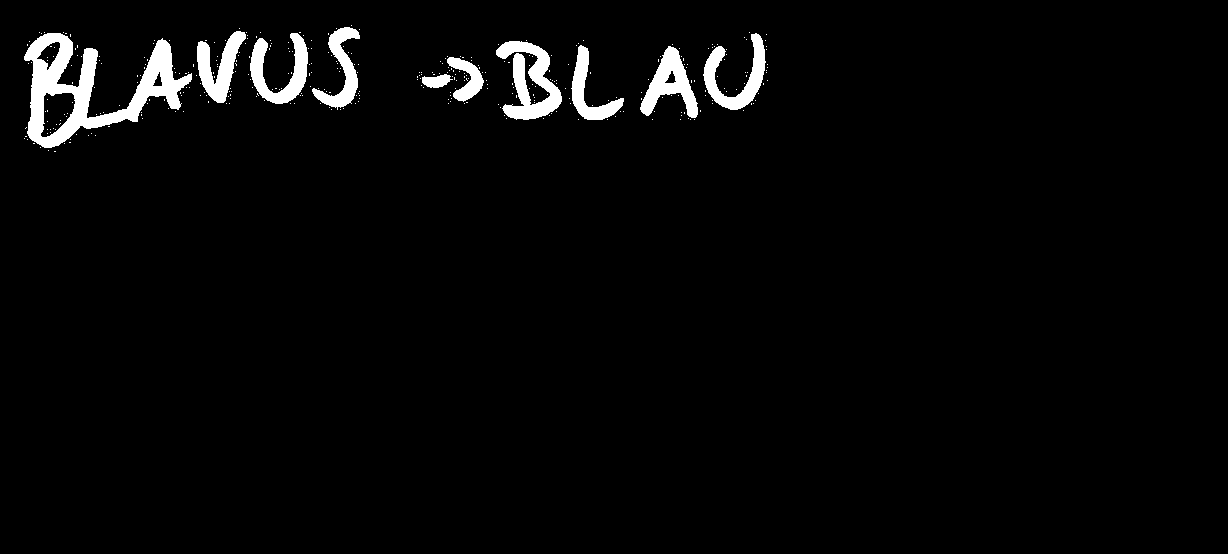 BLAVUS -> BLAU